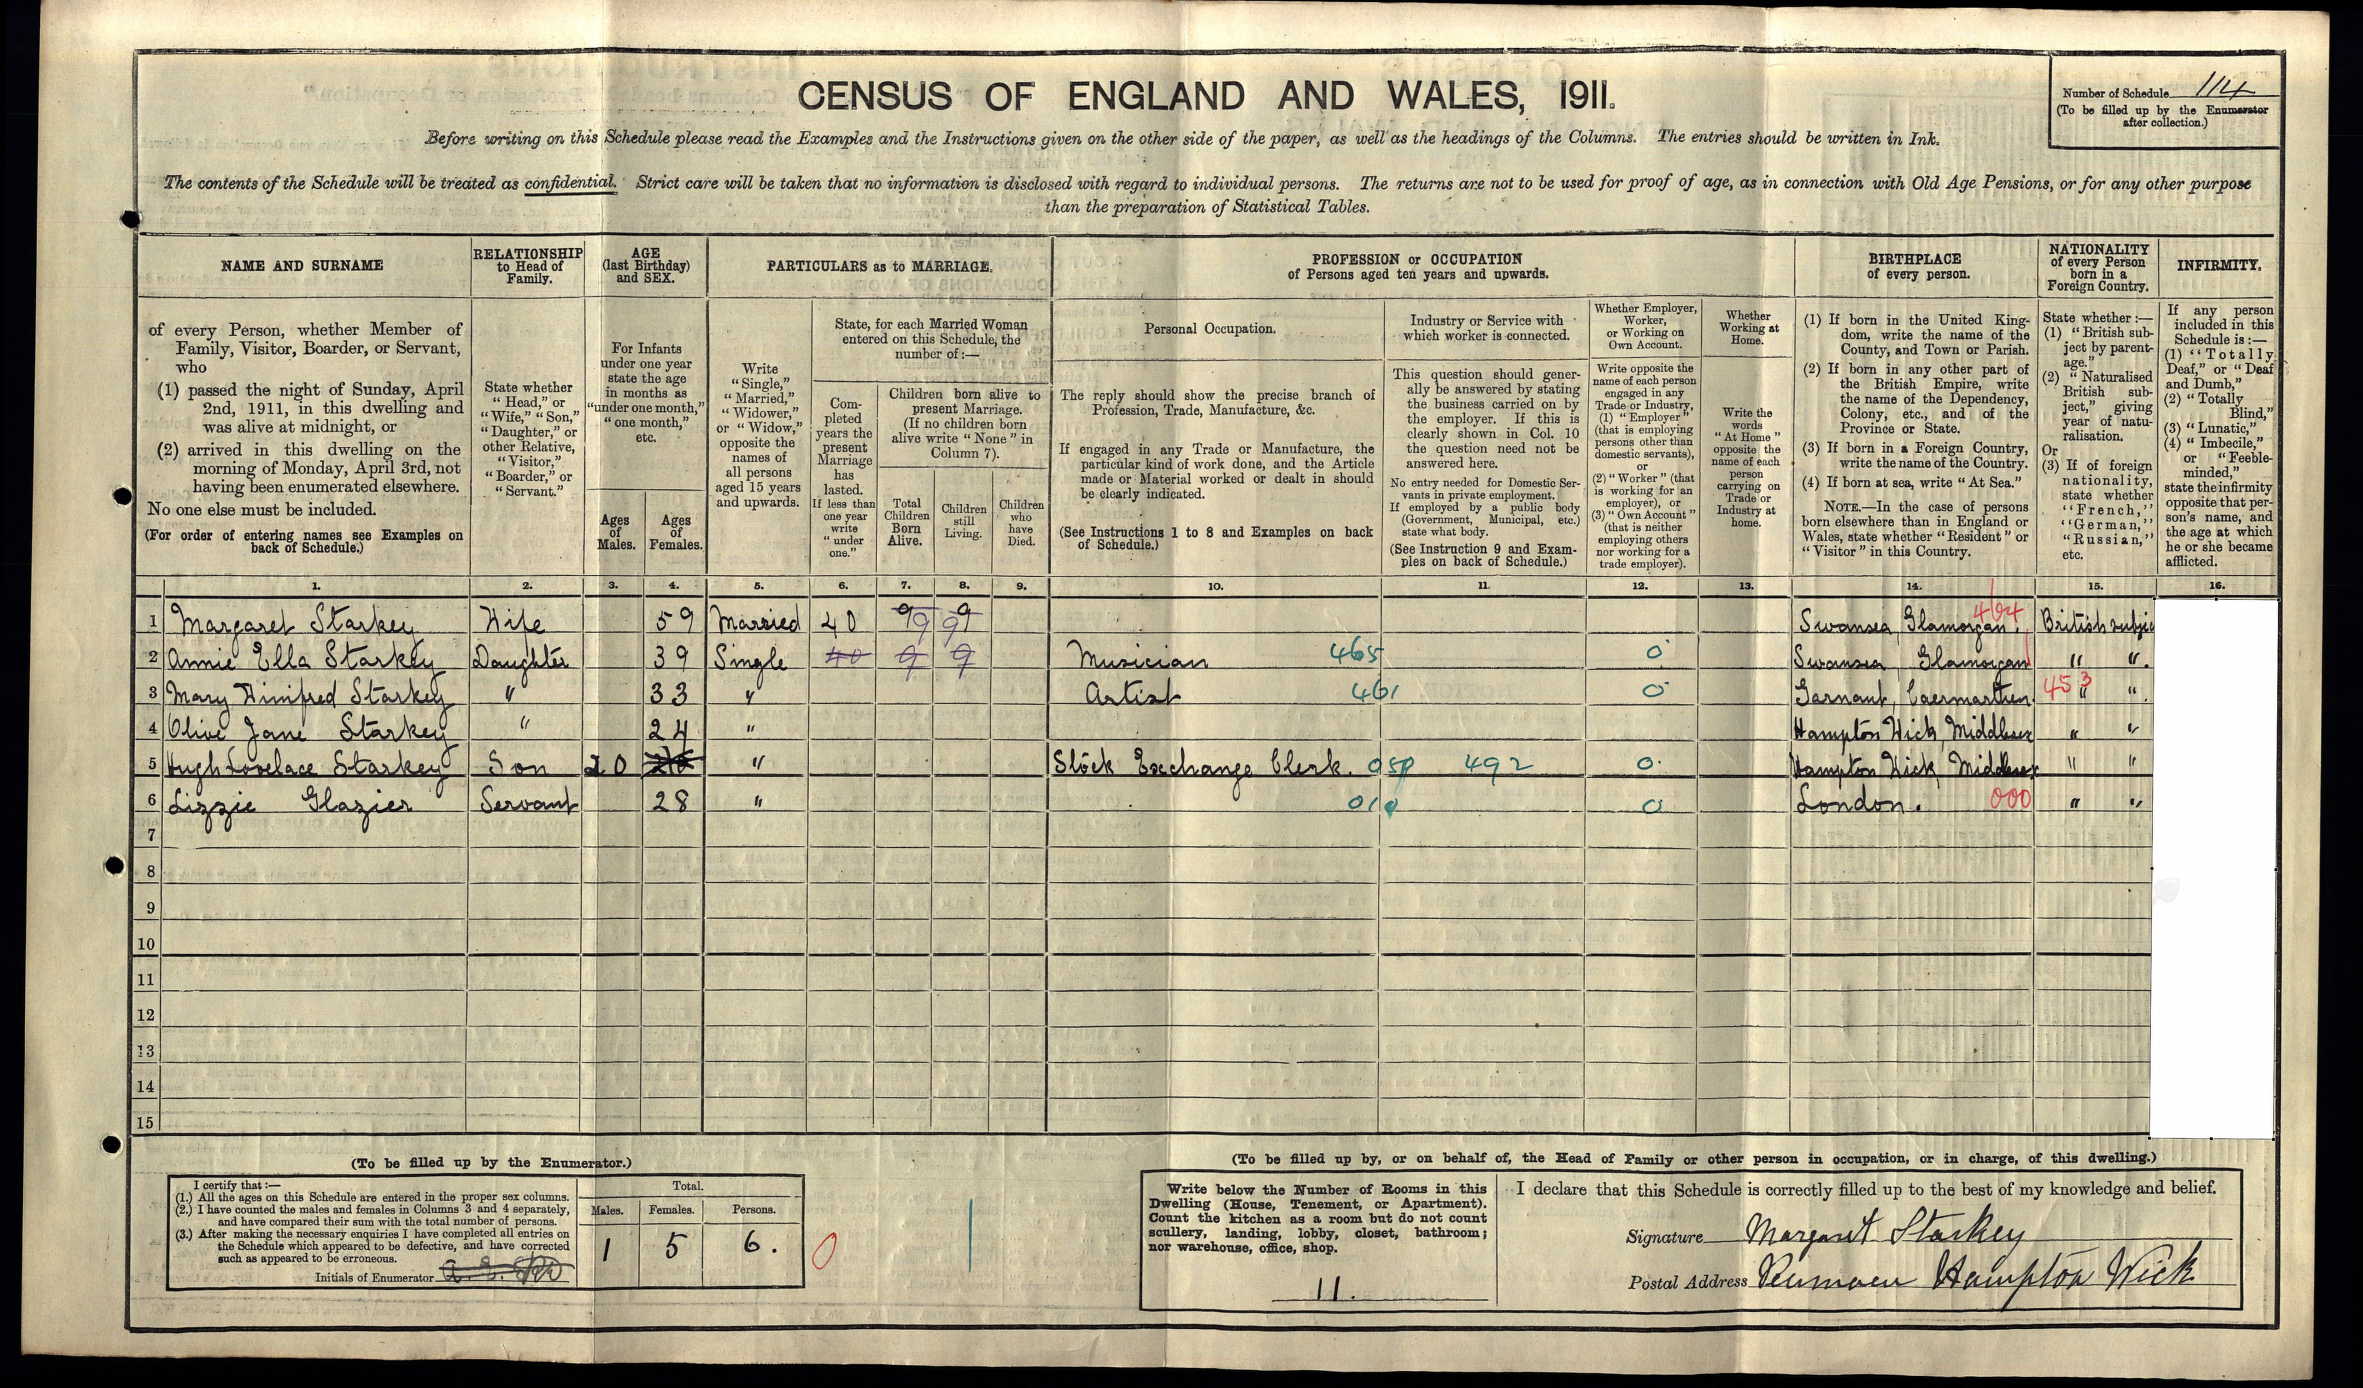 CENSUS OF ENGLAND AND WALES, 1911.
Number of Schedule 114
(To be filled up by the Enumerator
after collection.)
Before writing on this Schedule please read the Examples and the Instructions given on the other side of the paper, as well as the headings of the Columns. The entries should be written in Ink.
The contents of the Schedule will be treated as confidential. Strict care will be taken that no information is disclosed with regard to individual persons. The returns are not to be used for proof of age, as in connection with Old Age Pensions, or for any other purpose
than the preparation of Statistical Tables.
NAME AND SURNAME
of every Person, whether Member of
Family, Visitor, Boarder, or Servant,
who
(1) passed the night of Sunday, April
2nd, 1911, in this dwelling and
was alive at midnight, or
(2) arrived in this dwelling on the
morning of Monday, April 3rd, not
having been enumerated elsewhere.
No one else must be included.
(For order of entering names see Examples on
back of Schedule.)
RELATIONSHIP
to Head of
Family.
State whether
"Head," or
"Wife," "Son,"
"Daughter," or
other Relative,
"Visitor,"
"Boarder," or
"Servant."
AGE
(last Birthday)
and SEX.
For Infants
under one year
state the age
in months as
"under one month,"
"one month,"
etc.
Ages
of
Males.
Ages
of
Females.
PARTICULARS as to MARRIAGE.
Write
"Single,"
"Married,"
"Widower,"
or "Widow,"
opposite the
names of
all persons
aged 15 years
and upwards.
State, for each Married Woman
entered on this Schedule, the
number of:—
Com-
pleted
years the
present
Marriage
has
lasted.
If less than
one year
write
"under
one."
Children born alive to
present Marriage.
(If no children born
alive write "None" in
Column 7).
Total
Children
Born
Alive.
Children
still
Living.
Children
who
have
Died.
PROFESSION or OCCUPATION
of Persons aged ten years and upwards.
Personal Occupation.
The reply should show the precise branch of
Profession, Trade, Manufacture, &c.
If engaged in any Trade or Manufacture, the
particular kind of work done, and the Article
made or Material worked or dealt in should
be clearly indicated.
(See Instructions 1 to 8 and Examples on back
of Schedule.)
Industry or Service with
which worker is connected.
This question should gener-
ally be answered by stating
the business carried on by
the employer. If this is
clearly shown in Col. 10
the question need not be
answered here.
No entry needed for Domestic Ser-
vants in private employment.
If employed by a public body
(Government, Municipal, etc.)
state what body.
(See Instruction 9 and Exam-
ples on back of Schedule.)
Whether Employer,
Worker,
or Working on
Own Account.
Write opposite the
name of each person
engaged in any
Trade or Industry,
(1) "Employer"
(that is employing
persons other than
domestic servants),
or
(2) "Worker" (that
is working for an
employer), or
(3) "Own Account"
(that is neither
employing others
nor working for a
trade employer).
Whether
Working at
Home.
Write the
words
"At Home"
opposite the
name of each
person
carrying on
Trade or
Industry at
home.
BIRTHPLACE
of every person.
(1) If born in the United King-
dom, write the name of the
County, and Town or Parish.
(2) If born in any other part of
the British Empire, write
the name of the Dependency,
Colony, etc., and of the
Province or State.
(3) If born in a Foreign Country,
write the name of the Country.
(4) If born at sea, write "At Sea."
NOTE.—In the case of persons
born elsewhere than in England or
Wales, state whether "Resident" or
"Visitor" in this Country.
NATIONALITY
of every Person
born in a
Foreign Country.
State whether:—
(1) "British sub-
ject by parent-
age."
(2) "Naturalised
British sub-
ject," giving
year of natu-
ralisation.
Or
(3) If of foreign
nationality,
state whether
"French,"
"German,"
"Russian,"
etc.
INFIRMITY.
If any person
included in this
Schedule is:—
(1) "Totally
Deaf," or "Deaf
and Dumb,"
(2) "Totally
Blind,"
(3) "Lunatic,"
(4) "Imbecile,"
or "Feeble-
minded,"
state the infirmity
opposite that per-
son's name, and
the age at which
he or she became
afflicted.
1. 2. 3. 4. 5. 6. 7. 8. 9. 10. 11. 12. 13. 14. 15. 16.
1 Margaret Starkey Wife 59 Married 40 9 9 Swansea, Glamorgan. British subje
2 Annie Ella Starkey Daughter 39 Single 40 9 9 Musician 465 0 Swansea, Glamorgan " ".
3 Mary Winifred Starkey " 33 " Artist 461 0 Garnant, Caermarthen. 453 " ".
4 Olive Jane Starkey " 24 " Hampton Wick, Middlesex " "
5 Hugh Lovelace Starkey Son 20 " Stock Exchange Clerk. 492 0 Hampton Wick, Middlesex " "
6 Lizzie Glazier Servant 28 " 010 0 London. 000 " "
7
8
9
10
11
12
13
14
15
(To be filled up by the Enumerator.)
I certify that:—
(1.) All the ages on this Schedule are entered in the proper sex columns.
(2.) I have counted the males and females in Columns 3 and 4 separately,
and have compared their sum with the total number of persons.
(3.) After making the necessary enquiries I have completed all entries on
the Schedule which appeared to be defective, and have corrected
such as appeared to be erroneous.
Initials of Enumerator
Total.
Males. Females. Persons.
1 5 6.
0
(To be filled up by, or on behalf of, the Head of Family or other person in occupation, or in charge, of this dwelling.)
Write below the Number of Rooms in this
Dwelling (House, Tenement, or Apartment).
Count the kitchen as a room but do not count
scullery, landing, lobby, closet, bathroom;
nor warehouse, office, shop.
11.
I declare that this Schedule is correctly filled up to the best of my knowledge and belief.
Signature Margaret Starkey
Postal Address Penmaen Hampton Wick